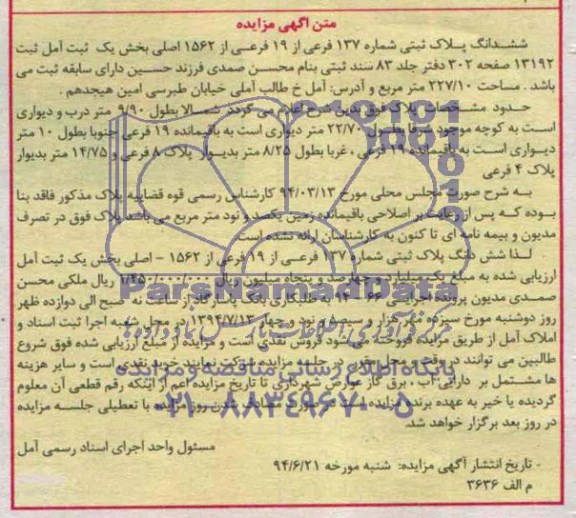 متن آگهی مزایده
ششدانگ پلاک ثبتی شماره ۱۳۷ فرعی از ۱۹ فرعی از ۱۵۶۲ اصلی بخش یک ثبت آمل ثبت
۱۳۱۹۲ صفحه ۳۰۲ دفتر جلد ۸۳ سند ثبتی بنام محسن صمدی فرزند حسین دارای سابقه ثبت می
باشد . مساحت ۲۲۷/۱۰ متر مربع و آدرس: آمل خ طالب آملی خیابان طبرسی امین هیجدهم .
حدود مشخصات پلاک فوق بدین شرح اعلام می گردد. شمالا بطول ۹/۹۰ متر درب و دیواری
است به کوچه موجود شرقا بطول ۲۲/۷۰ متر دیواری است به باقیمانده ۱۹ فرعی جنوبا بطول ۱۰ متر
دیواری است به باقیمانده ۱۹ فرعی ، غربا بطول ۸/۲۵ متر بدیوار پلاک ۸ فرعی و ۱۴/۷۵ متر بدیوار
پلاک ۴ فرعی
به شرح صورت مجلس محلی مورخ ۹۴/۰۳/۱۳ کارشناس رسمی قوه قضاییه پلاک مذکور فاقد بنا
بوده که پس از رعایت بر اصلاحی باقیمانده زمین یکصد و نود متر مربع می باشد پلاک فوق در تصرف
مدیون و بیمه نامه ای تا کنون به کارشناسان ارائه نشده است.
لذا شش دانگ پلاک ثبتی شماره ۱۳۷ فرعی از ۱۹ فرعی از ۱۵۶۲ - اصلی بخش یک ثبت آمل
ارزیابی شده به مبلغ یک میلیارد و چهارصد و پنجاه میلیون ریال ۱/۴۵۰/۰۰۰/۰۰۰ ریال ملکی محسن
صمدی مدیون پرونده اجرایی ۹۴۰۰۰۶۶ به طلبکاری بانک پاسارگاد از ساعت نه صبح الی دوازده ظهر
روز دوشنبه مورخ سیزده مهر هزار و سیصد و نود و چهار ۱۳۹۴/۷/۱۳ در محل شعبه اجرا ثبت اسناد و
املاک آمل از طریق مزایده فروخته می شود فروش نقدی است و مزایده از مبلغ ارزیابی شده فوق شروع
طالبین می توانند در وقت و محل مقرر در جلسه مزایده شرکت نمایند خرید نقدی است و سایر هزینه
ها مشتمل بر دارایی، آب ، برق گاز عوارض شهرداری تا تاریخ مزایده اعم از اینکه رقم قطعی آن معلوم
گردیده یا خیر به عهده برنده مزایده است در صورت مصادف شدن روز مزایده با تعطیلی جلسه مزایده
در روز بعد برگزار خواهد شد.
مسئول واحد اجرای اسناد رسمی آمل
- تاریخ انتشار آگهی مزایده: شنبه مورخه ۹۴/۶/۲۱
م الف ۳۶۳۶
ParsNamadData
پایگاه اطلاع رسانی مناقصه و مزایده
۰۲۱-۸۸۳۴۹۶۷۰-۵